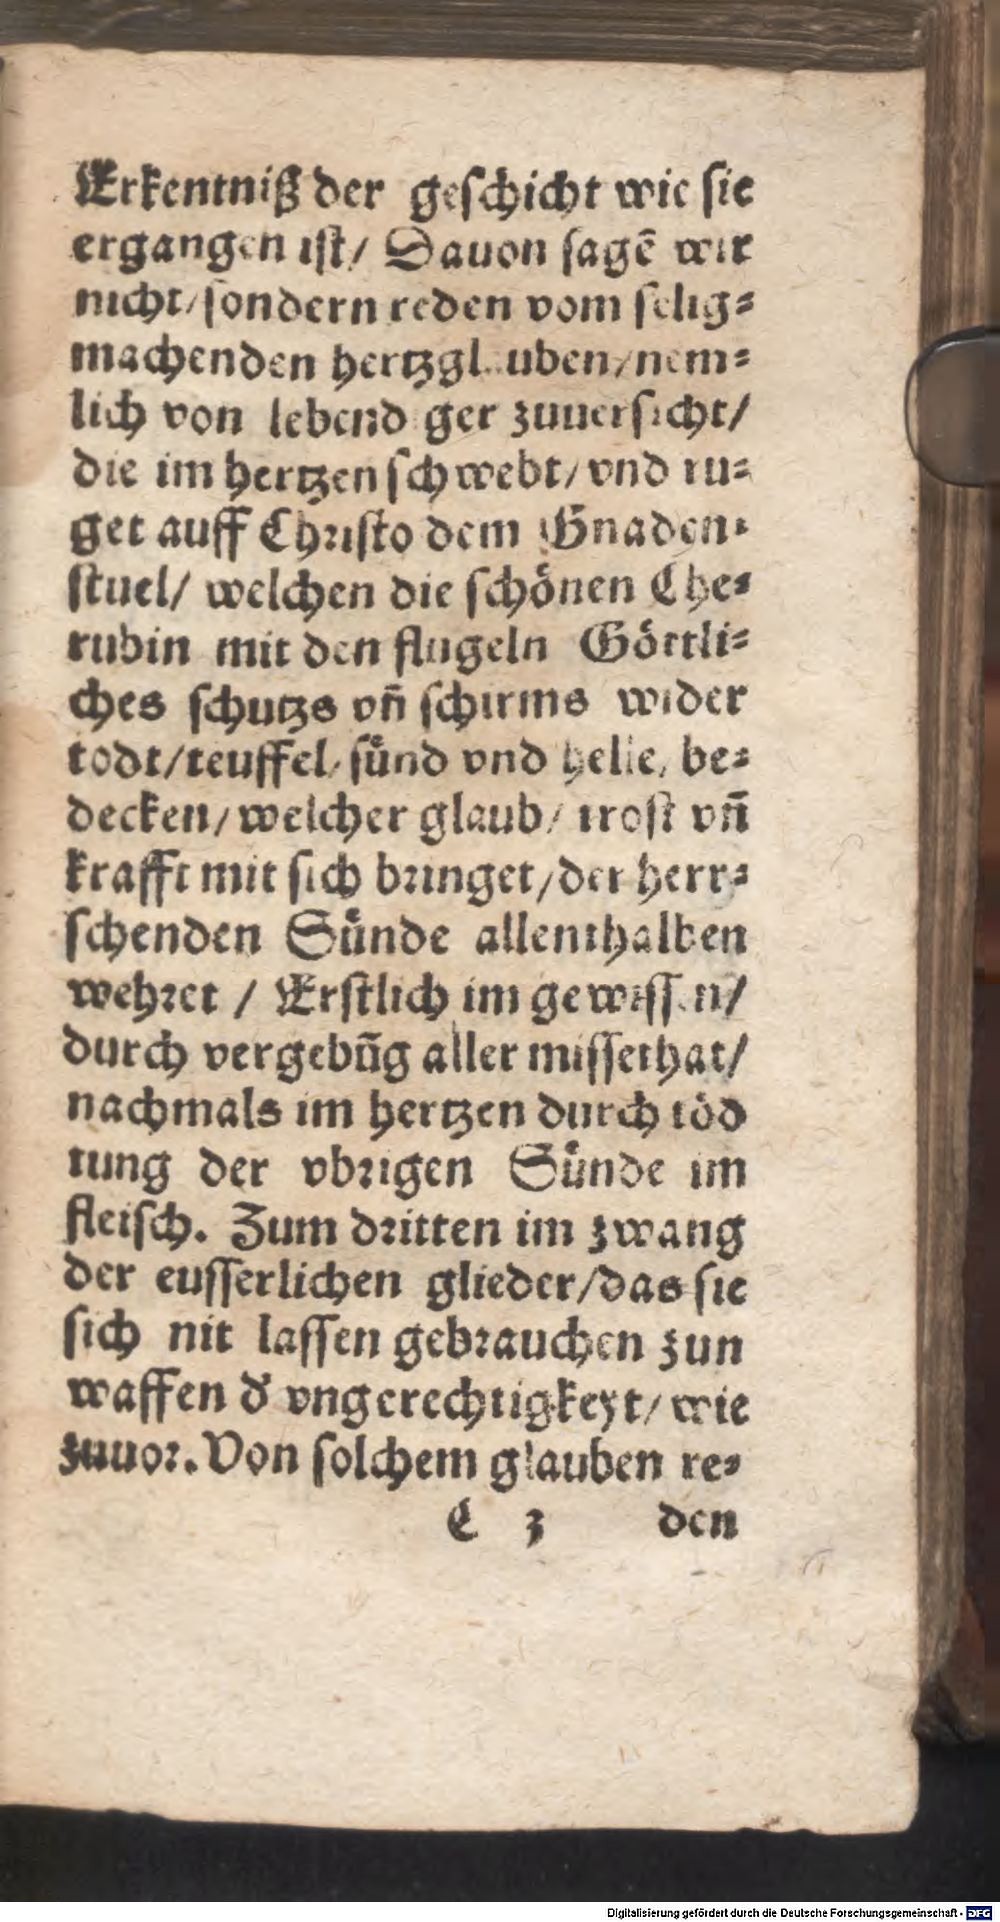 Erkentniß der geschicht wie sie
ergangen ist/ Dauon sagē wir
nicht/ sondern reden vom selig⸗
machenden hertzglauben/ nem⸗
lich von lebendiger zuuersicht/
die im hertzen schwebt/ vnd ru⸗
get auff Christo dem Gnaden⸗
stuel/ welchen die schönen Che⸗
rubin mit den flugeln Göttli⸗
ches schutzs vñ schirms wider
todt/ teuffel/ sünd vnd helle, be⸗
decken/ welcher glaub/ trost vñ
krafft mit sich bringet/ der herr⸗
schenden Sünde allenthalben
wehret / Erstlich im gewissen/
durch vergebūg aller missethat/
nachmals im hertzen durch töd
tung der vbrigen Sünde im
fleisch. Zum dritten im zwang
der eusserlichen glieder/ das sie
sich nit lassen gebrauchen zun
waffen d' vngerechtigkeyt/ wie
zuuor. Von solchem glauben re⸗
C 3 den
Digitalisierung gefördert durch die Deutsche Forschungsgemeinschaft - DFG